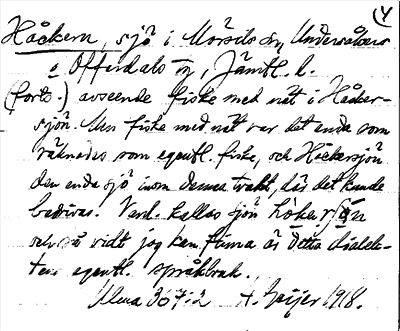 (4
Håckern, sjö i Mörsils sn, Undersåkers
o Offerdals sn, Jämtl. l.
(forts.) avseende fiske med nät i Håcker-
sjön. Men fiske med nät var det enda som
räknades som egentl. fiske, och Håckersjön
den enda sjö inom denna trakt, där det kunde
bedrivas. Vard. kallas sjön
och så vidt jag kan finna är detta dialek-
tens egentl. språkbruk.
Ulma 367:2 H. Geijer 1918.